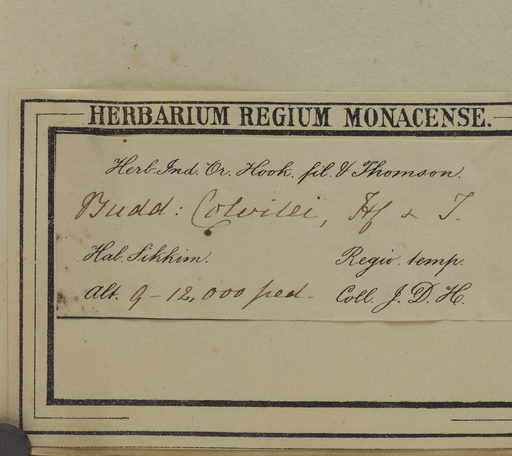 HERBARIUM REGIUM MONACENSE.
Herb. Ind. Or. Hook. fil. & Thomson.
Budd: Colvilei, Hf & T.
Hab. Sikkim. Regio. temp.
Alt. 9-12,000 ped. Coll. J. D. H.